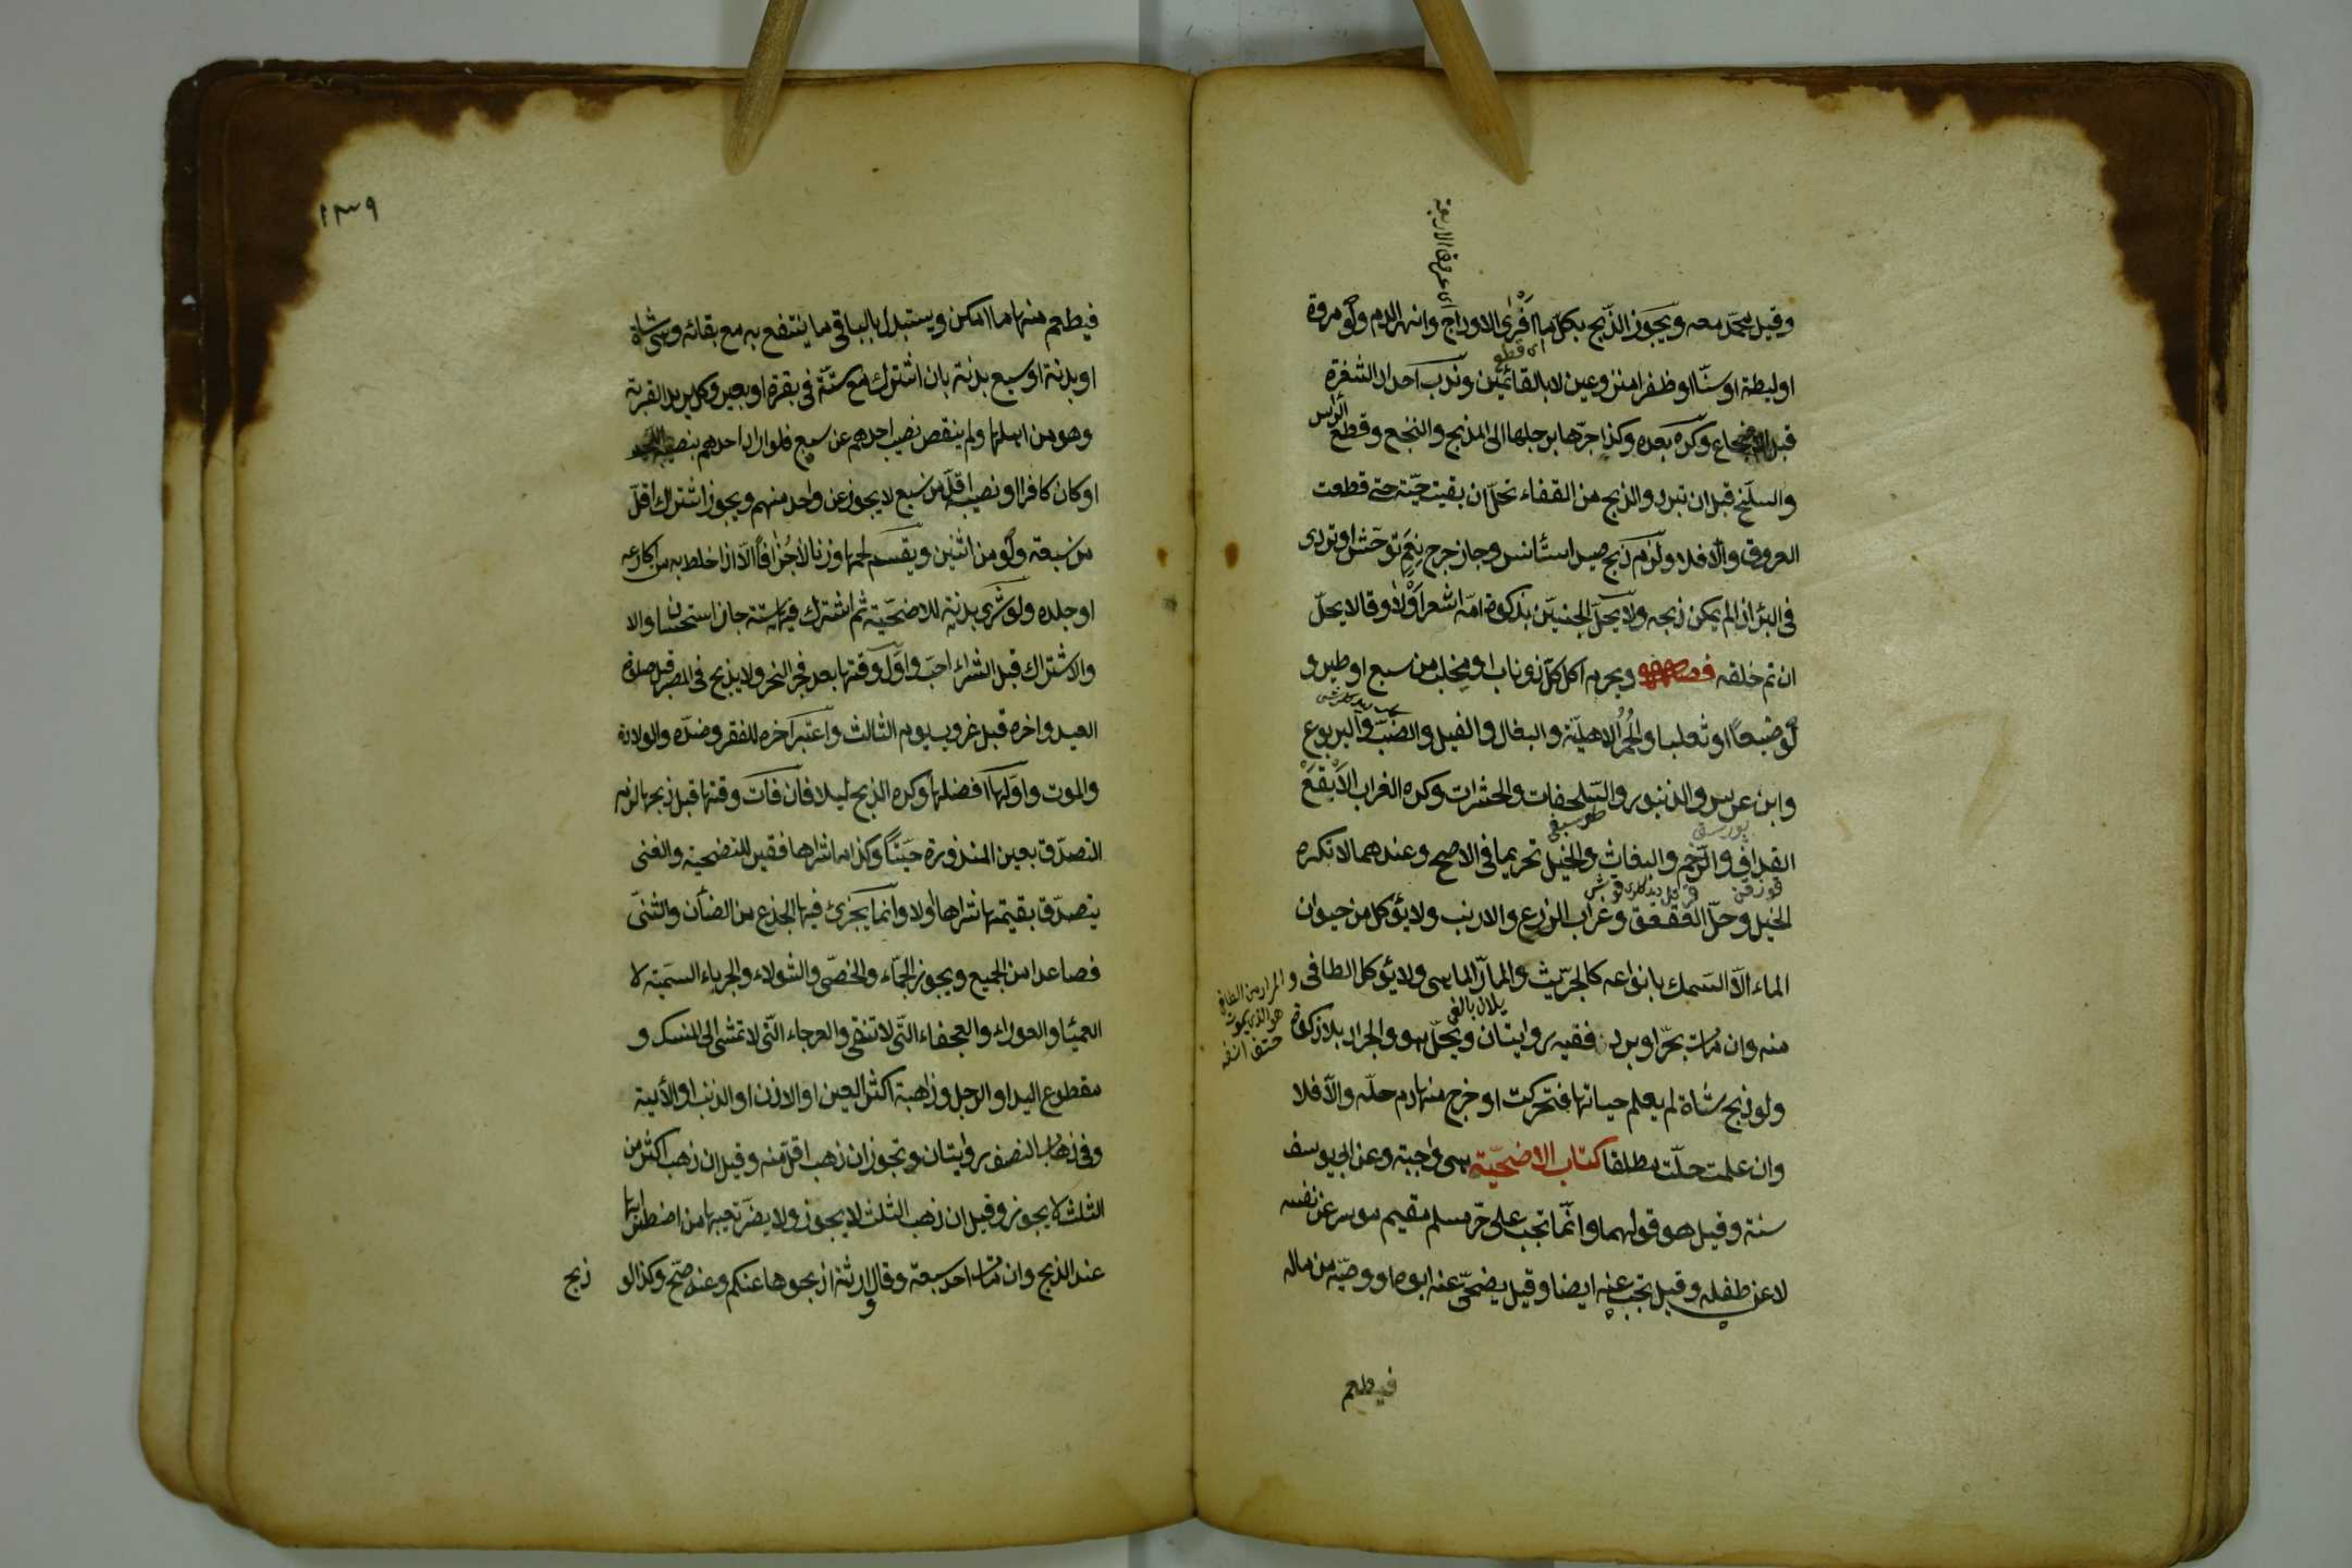 وقيل محمد معه ويجوز الذبح بكل ما افرى الاوداج وانهر الدم ولو مروة
اى عروق الاربعة
اى قطع
او ليطة او سنّا او ظفرا منزوعين لا بالقائمين وندب احداد الشفرة
قبل الاضجاع وكره بعده وكذا جرّها برجلها الى المذبح والنخع وقطع الراس
والسلخ قبل ان تبرد والذبح من القفاء تحل ان بقيت حيّة حتى قطعت
العروق والّا فلا ولزم ذبح صيد استأنس وجاز جرح نعم توحّش او تردى
فى البئر اذا لم يمكن ذبحه ولا يحلّ الجنين بذكوة امّه اشعر اولا وقالا يحلّ
ان تم خلقه ويحرم اكل كلّ ذى ناب او مخلب من سبع او طير و
لو ضبعاً او ثعلبا والحُمُر الاهليّة والبغال والفيل والضبّ واليربوع
وابن عرس والزنبور والسّلحفات والحشرات وكره الغراب الابقع
الغداف والرّخم والبغاث والخيل تحريما فى الاصح وعندهما لا تكره
الخيل وحلّ العقعق وغراب الزرع والارنب ولا يؤكل من حيوان
الماء الّا السمك بانواعه كالجرّيث والمارّ الماهى ولا يؤكل الطافى و
يلان بالغى
المراد من الطافى
هو الذى يموت
حتف انفه
منه وان مات بحرّ او برد ففيه روايتان ويحلّ هو والجراد بلا ذكوة
ولو ذبح شاة لم يعلم حياتها فتحركت او خرج منها دم حلّه والّا فلا
وان علمت حلّت مطلقا كتاب الاضحيّة هى واجبة وعن ابى يوسف
سنة وقيل هو قولهما وانّما تجب على حرّ مسلم مقيم موسر عن نفسه
لا عن طفله وقيل تجب عنه ايضا وقيل يضحّى عنه ابوه او وصيّه من ماله
فيطعم
١٣٩
فيطعم منها ما امكن ويستبدل بالباقى ما ينتفع به مع بقائه وهى شاة
او بدنة او سبع بدنة بان اشترك مع ستّة فى بقرة او بعير وكل يريد القربة
وهو من اهلها ولم ينقص نصيب احدهم عن سبع فلو اراد احدهم بنصيبه اللحم
او كان كافرا او نصيبه اقلّ من سبع لا يجوز عن واحد منهم ويجوز اشتراك اقلّ
من سبعة ولو من اثنين ويقسم لحمها وزنا لا جُزافاً الّا اذا خلط به من اكارعه
او جلده ولو شرى بدنة للاضحيّة ثم اشترك فيها ستة جاز استحسانا والا
والاشتراك قبل الشراء احبّ واوّل وقتها بعد فجر النحر ولا يذبح فى المصر قبل صلوة
العيد واخره قبل غروب يوم الثالث واعتبر اخره للفقر وضدّه والولادة
والموت واوّلها افضلها وكره الذبح ليلا فان فات وقتها قبل ذبحها لزم
التصدّق بعين المنذورة حيّتاً وكذا ما اشراها فقير للتضحية والغنى
يتصدّق بقيمتها شراها اولا وانّما يجزئ فيها الجذع من الضأن والثنىّ
فصاعدا من الجميع ويجوز الجمّاء والخصّى والثولاء والجرباء السمينة لا
العمياء والعوراء والعجفاء التّى لا تنقى والعرجاء التّى لا تمشى الى المنسك و
مقطوع اليد او الرجل وذاهبة اكثر العين او الاذن او الذنب او الألية
وفى ذهاب النصف روايتان وتجوز ان ذهب اقل منه وقيل ان ذهب اكثر من
الثلث لا يجوز وقيل ان ذهب الثلث لا يجوز ولا يضرّ تعيبها من اضطرابها
عند الذبح وان مات احد سبعة وقال ورثته اذبحوها عنكم وعنه صحّ وكذا لو
ذبح